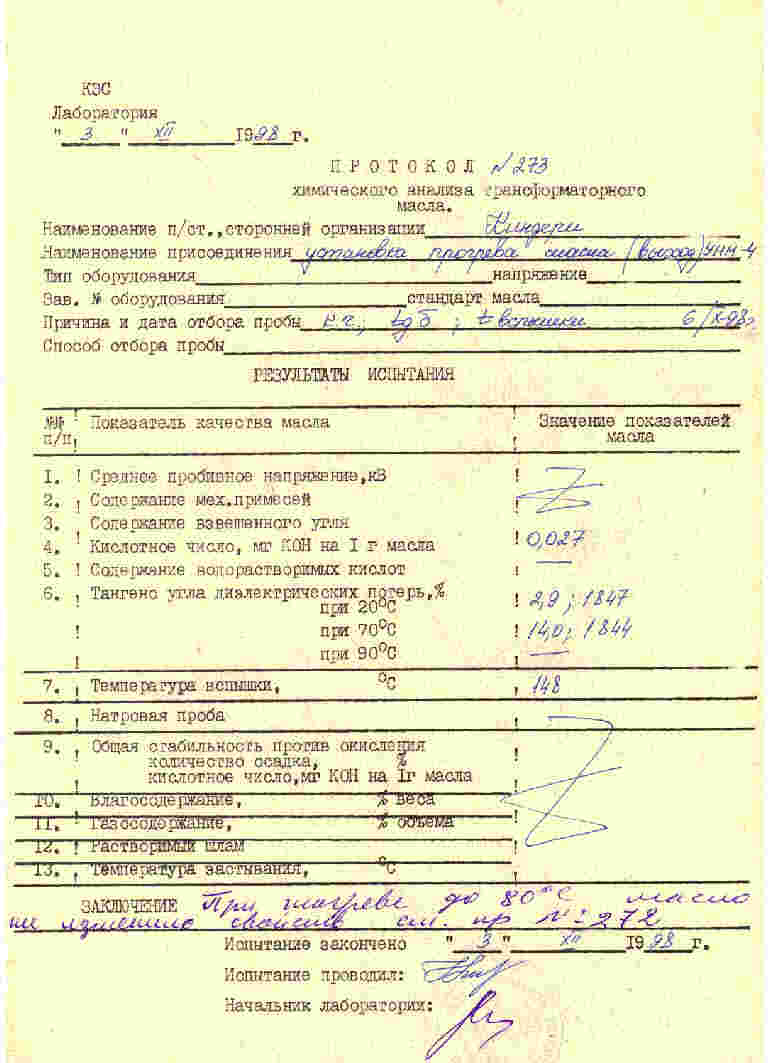 КЭС
Лаборатория
" 3 " XII 1998 г.
ПРОТОКОЛ № 273
химического анализа трансформаторного
масла.
Наименование п/ст.,сторонней организации Киндери
Наименование присоединения установка прогрева масла (выход) УНМ-4
Тип оборудования напряжение
Зав. № оборудования стандарт масла
Причина и дата отбора пробы к.ч.; tgδ ; t вспышки 6/X-98г
Способ отбора пробы
РЕЗУЛЬТАТЫ ИСПЫТАНИЯ
№№ ! Показатель качества масла ! Значение показателей
п/п! ! масла
1. ! Среднее пробивное напряжение,кВ !
2. ! Содержание мех.примесей
3. Содержание взвешенного угля
4. ! Кислотное число, мг КОН на 1 г масла ! 0,027
5. ! Содержание водорастворимых кислот ! —
6. ! Тангенс угла диэлектрических потерь,%
при 20°С ! 2,9 ; 1847
! при 70°С ! 14,0; 1844
! при 90°С ! —
7. ! Температура вспышки, °С ! 148
8. ! Натровая проба !
9. ! Общая стабильность против окисления !
количество осадка, %
кислотное число,мг КОН на 1г масла
10. ! Влагосодержание, % веса
11. ! Газосодержание, % объема
12. ! Растворимый шлам !
13. ! Температура застывания, °С !
ЗАКЛЮЧЕНИЕ При нагреве до 80°С масло
не изменило свойств см. пр № 272
Испытание закончено " 3 " XII 1998 г.
Испытание проводил:
Начальник лаборатории: